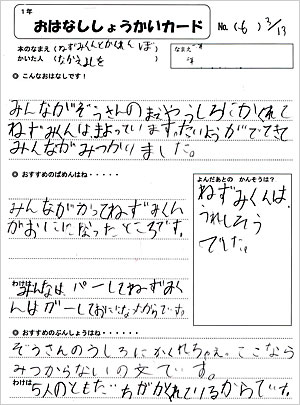 1年
おはなししょうかいカード No.(6) 3/13
本のなまえ(ねずみくんとかくれんぼ)
かいた人(なかえよしを)
なまえ
◎ こんなおはなしです!
みんながぞうさんのまえやうしろにかくれて
ねずみくんは、まよっています。たいようがでてきて
みんながみつかりました。
◎ おすすめのばめんはね・・・・・
みんながかってねずみくん
がおにになったところです。
わけは みんなは、パーしてねずみく
んはグーしておにになったからです。
よんだあとの かんそうは?
ねずみくんは、
うれしそう
でした。
◎ おすすめのぶんしょうはね・・・・・
ぞうさんのうしろにかくれちゃえ。ここなら
みつからないの文です。
わけは 5人のともだちがかくれているからです。